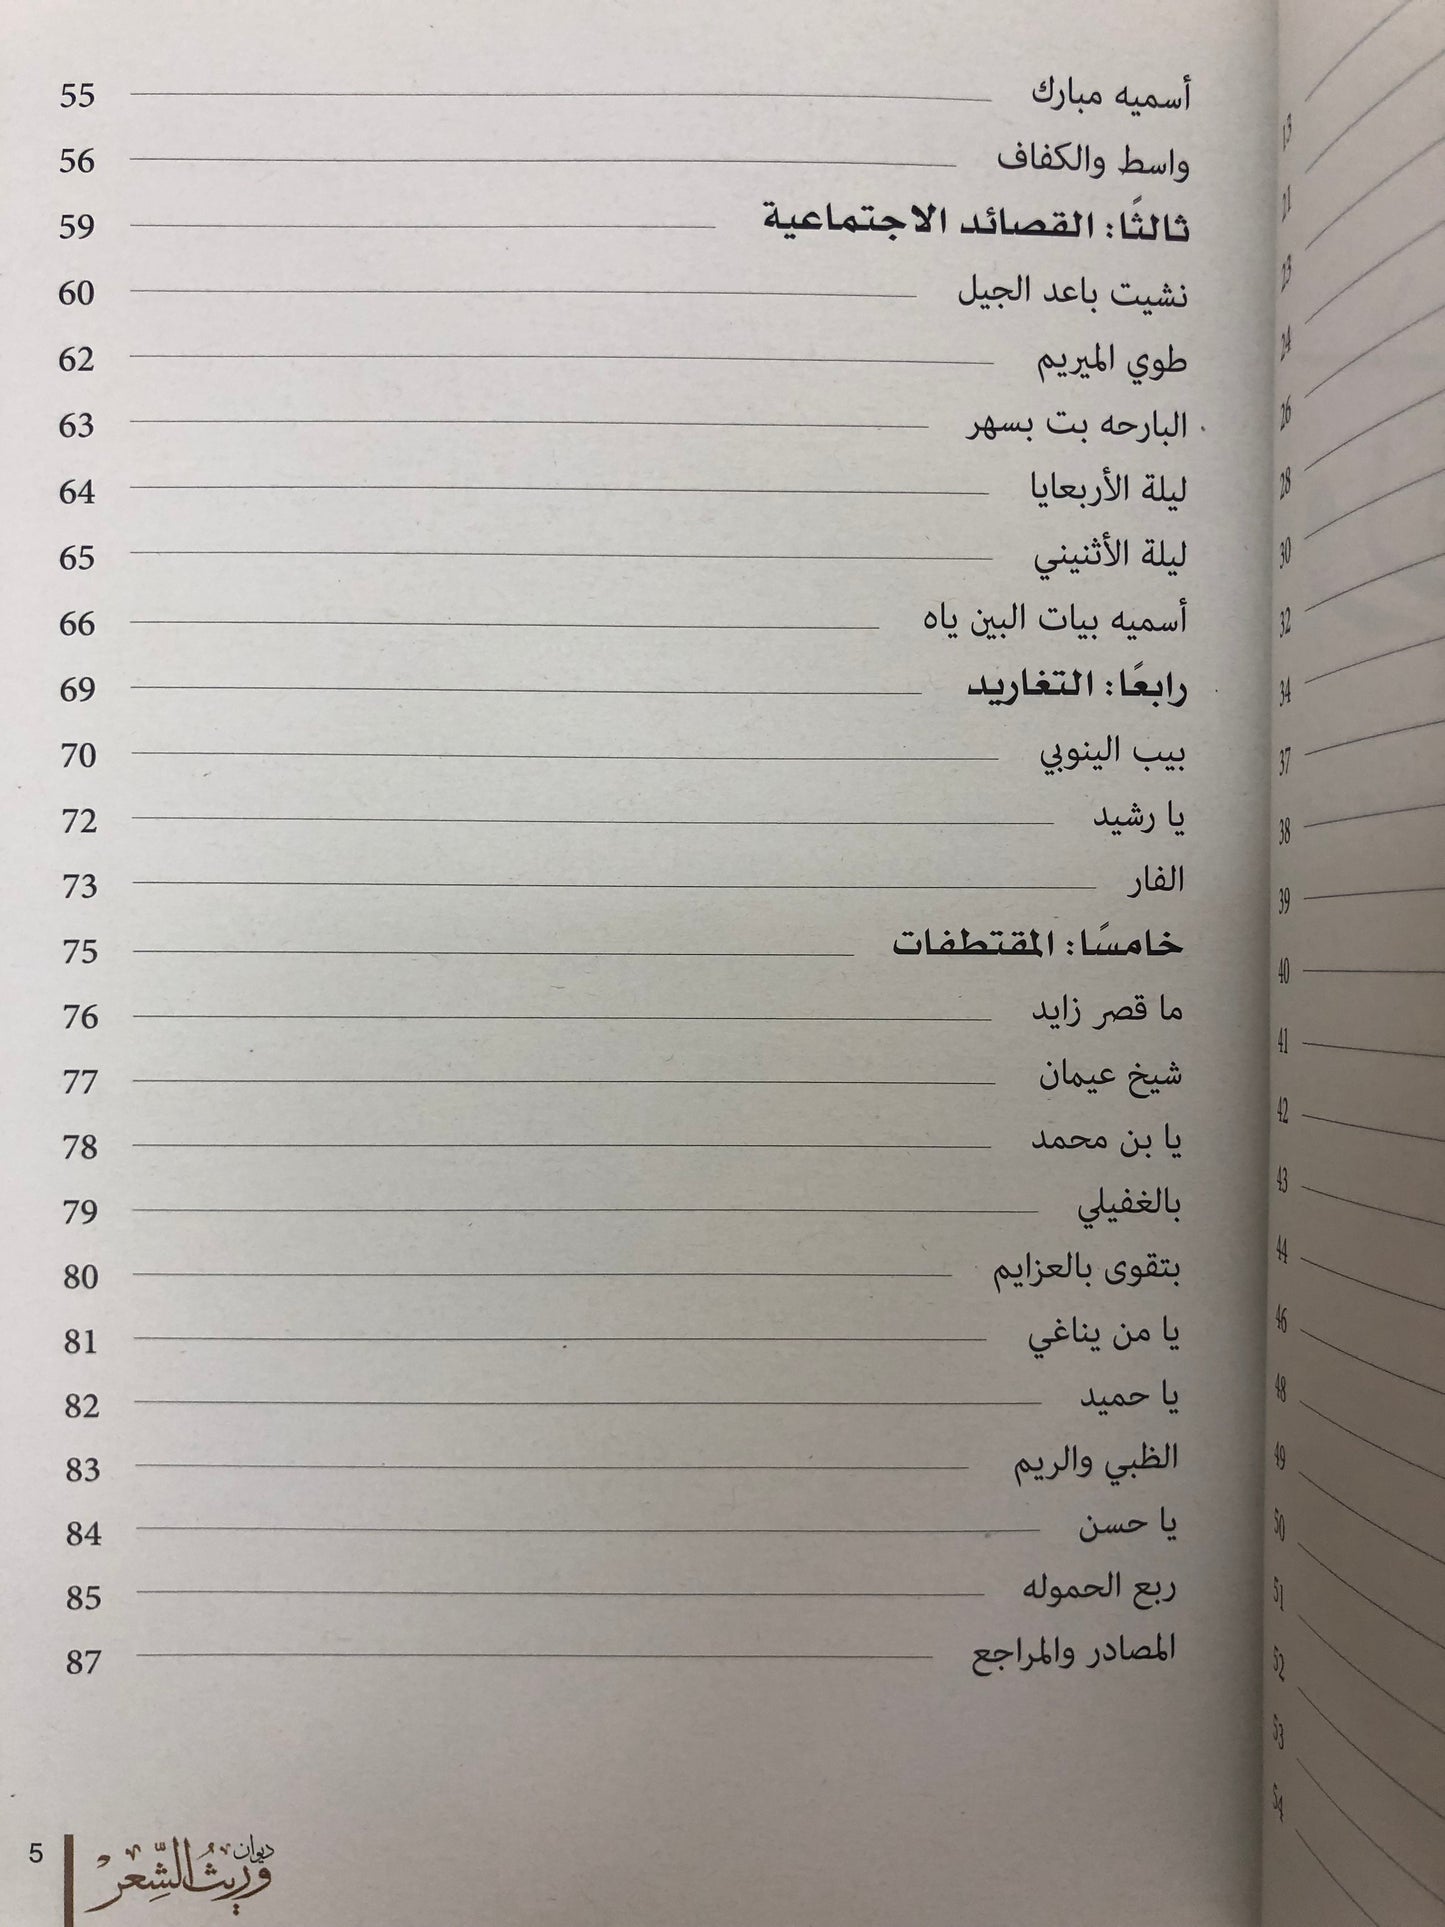 أسميه مبارك 55
واسط والكفاف 56
ثالثًا: القصائد الاجتماعية 59
نشيت باعد الجيل 60
طوي الميريم 62
البارحه بت بسهر 63
ليلة الأربعايا 64
ليلة الأثنيني 65
أسميه بيات البين ياه 66
رابعًا: التغاريد 69
بيب الينوبي 70
يا رشيد 72
الفار 73
خامسًا: المقتطفات 75
ما قصر زايد 76
شيخ عيمان 77
يا بن محمد 78
بالغفيلي 79
بتقوى بالعزايم 80
يا من يناغي 81
يا حميد 82
الظبي والريم 83
يا حسن 84
ربع الحموله 85
المصادر والمراجع 87
ديوان
وريث الشِّعر
5
13
21
23
24
26
28
30
32
34
37
38
39
40
41
42
43
44
46
48
49
50
51
52
53
54